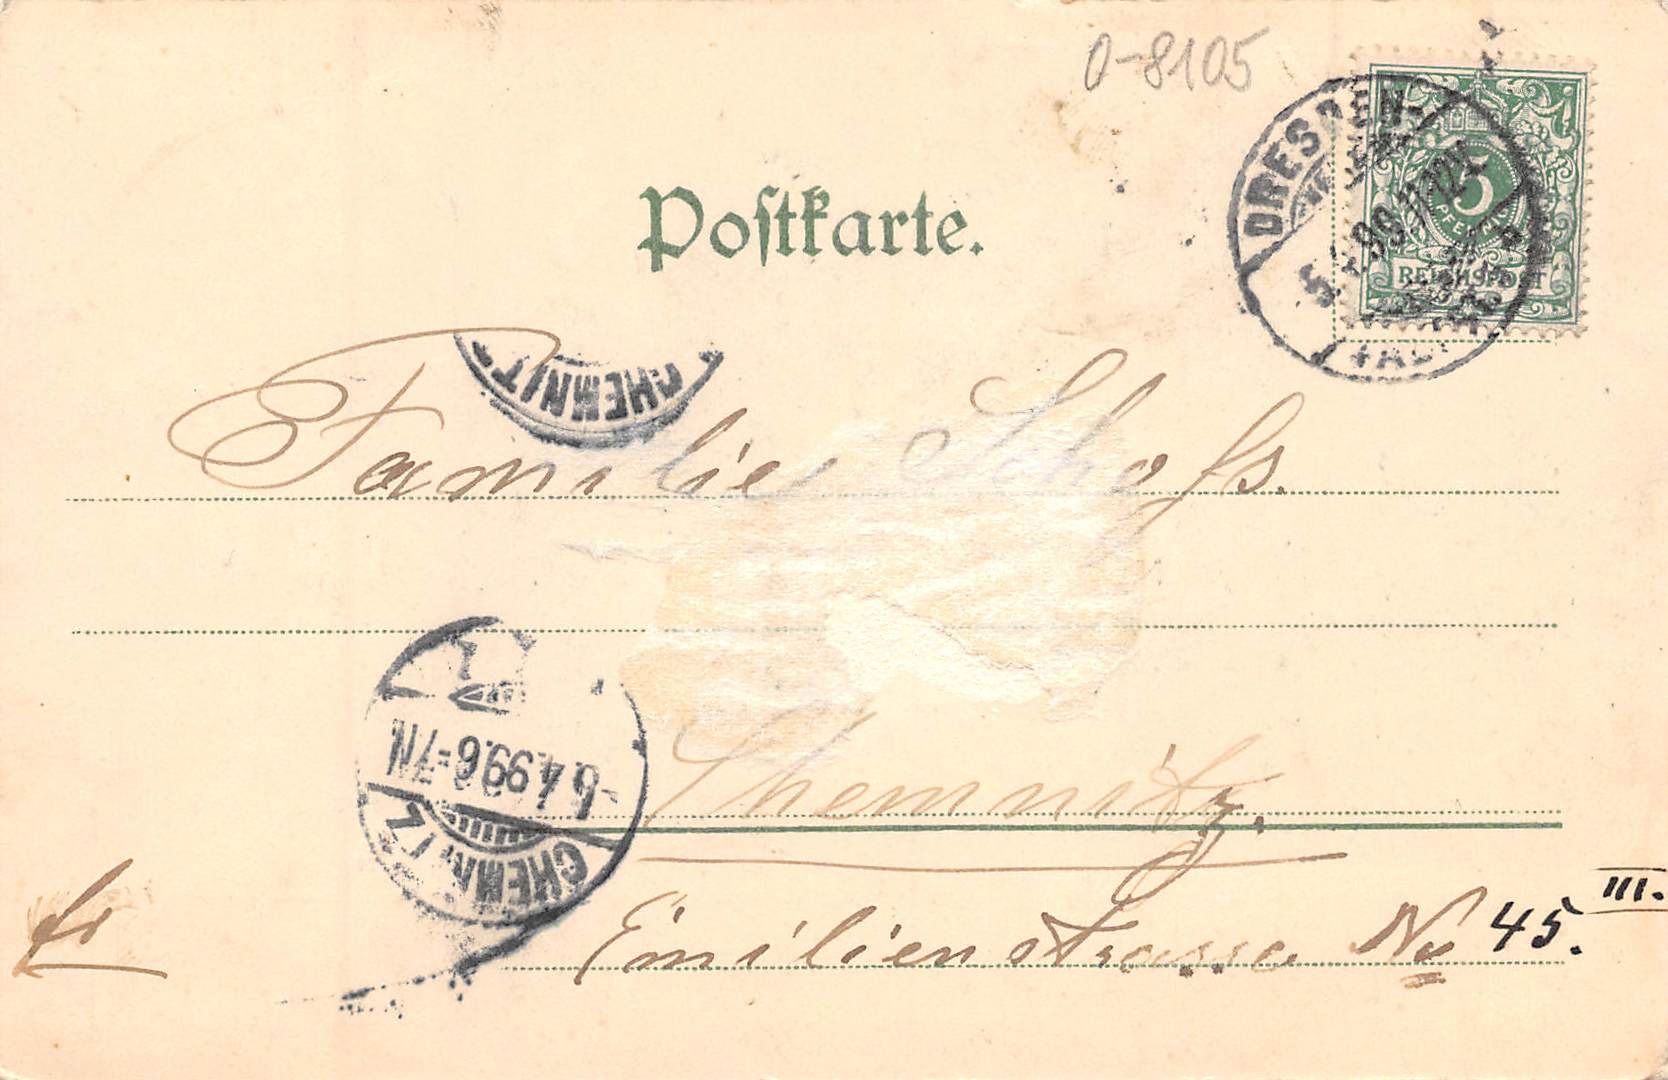 0-8105
DRESDEN-
5.4.99.11-12V.
5
PFENNIG
REICHSPOST
Postkarte.
CHEMNITZ
Familie Schofs.
6.4.99.6-7N.
CHEMNITZ
Chemnitz.
fr
Emilienstrasse No 45. III.